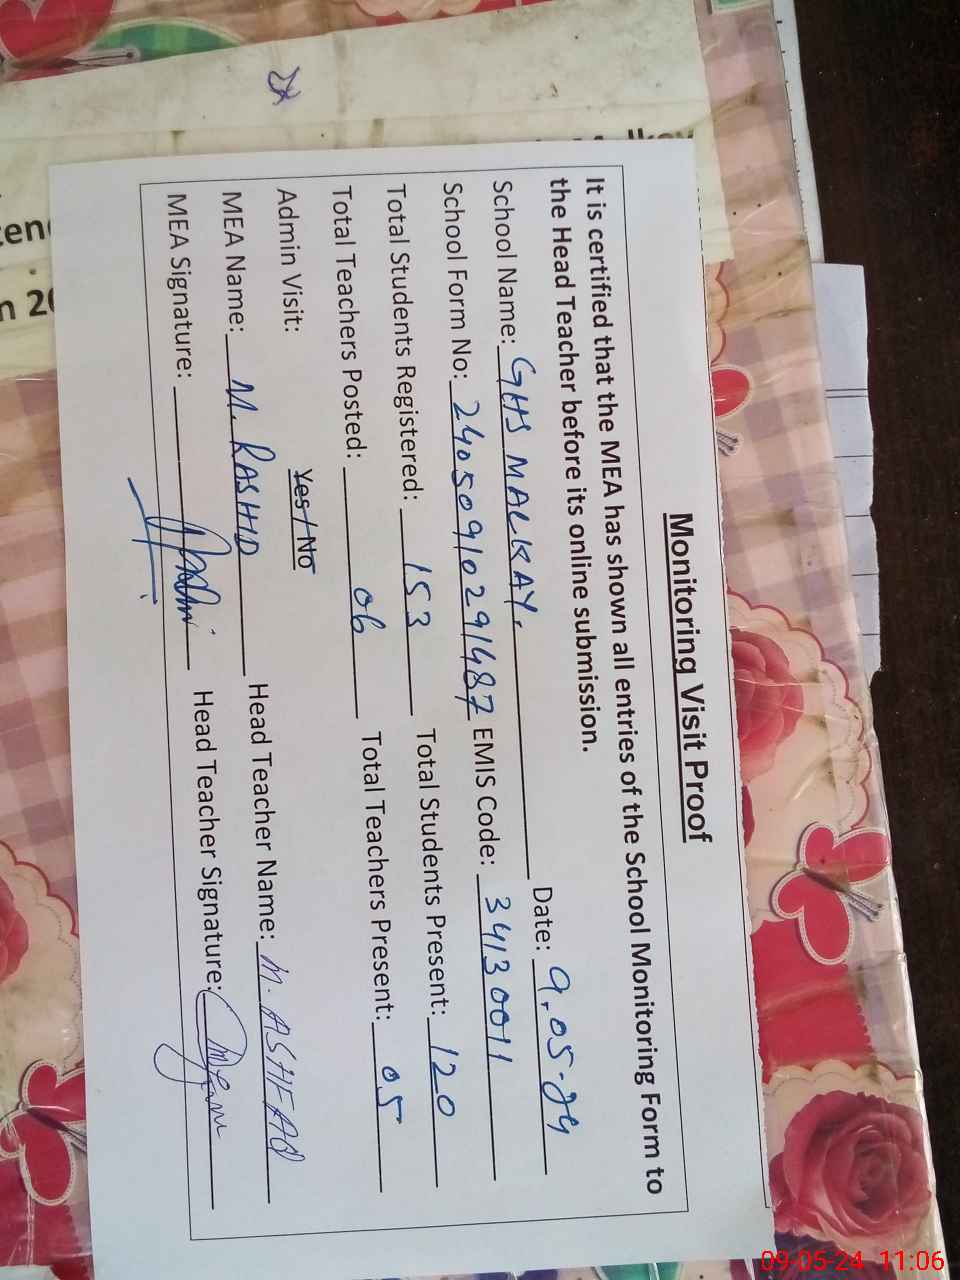 Monitoring Visit Proof
It is certified that the MEA has shown all entries of the School Monitoring Form to
the Head Teacher before its online submission.
School Name: GHS MALKAY. Date: 9.05.24
School Form No: 24050910291487 EMIS Code: 34130011
Total Students Registered: 153 Total Students Present: 120
Total Teachers Posted: 06 Total Teachers Present: 05
Admin Visit: Yes / No
MEA Name: M. RASHID Head Teacher Name: M. ASHFAQ
MEA Signature: Head Teacher Signature:
09-05-24 11:06